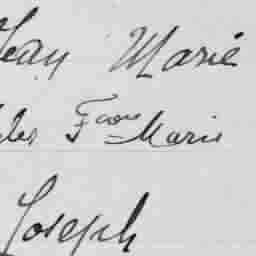 Jean Marie
les Fcois Marie
Joseph